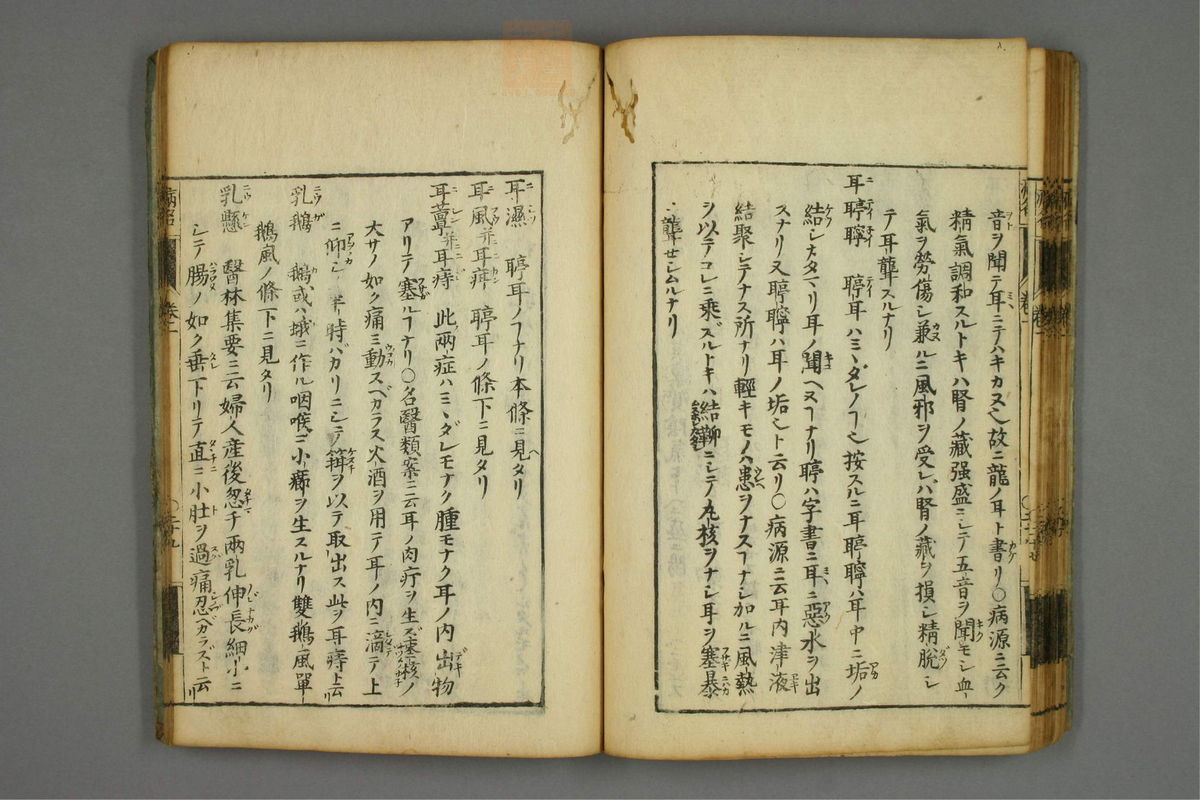 音ヲ聞テ耳ニテハキカス故ニ龍ノ耳ト書リ○病源ニ云ク
精氣調和スルトキハ腎ノ藏强盛ニシテ五音ヲ聞モシ血
氣ヲ勞傷シ兼ルニ風邪ヲ受レバ腎ノ藏ヲ損シ精脫シ
テ耳聾スルナリ
耳聤聹 聤耳ハミヽダレノヿ也按スルニ耳聤聹ハ耳中ニ垢ノ
結シカタマリ耳ノ聞ヘヌヿナリ聤ハ字書ニ耳ニ惡水ヲ出
スナリ又聤聹ハ耳ノ垢也ト云リ○病源ニ云耳內津液
結聚シテナス所ナリ輕キモノハ患ヲナスヿナシ加ルニ風熱
ヲ以テコレニ乘ズルトキハ結ニシテ丸核ヲナシ耳ヲ塞暴
ニ聾セシムルナリ
耳濕 聤耳ノヿナリ本條ニ見タリ
耳風并耳疳 聤耳ノ條下ニ見タリ
耳蕈并耳痔 此兩症ハミヽダレモナク腫モナク耳ノ內出物
アリテ塞ルヿナリ○名醫類案ニ云耳ノ肉疔ヲ生ズ棗核ノ
大サノ如ク痛ミ動スベカラス火酒ヲ用テ耳ノ內ニ滴テ上
ニ仰シ半時バカリニシテ箝ヲ以テ取出ス此ヲ耳痔ト云リ
乳鵝 鵝或ハ蛾ニ作ル咽喉ニ小癤ヲ生スルナリ雙鵝風單
鵝風ノ條下ニ見タリ
乳懸 醫林集要ニ云婦人產後忽チ兩乳伸長細小ニ
シテ腸ノ如ク垂下リテ直ニ小肚ヲ過痛忍ベガラズト云リ
病名 卷二